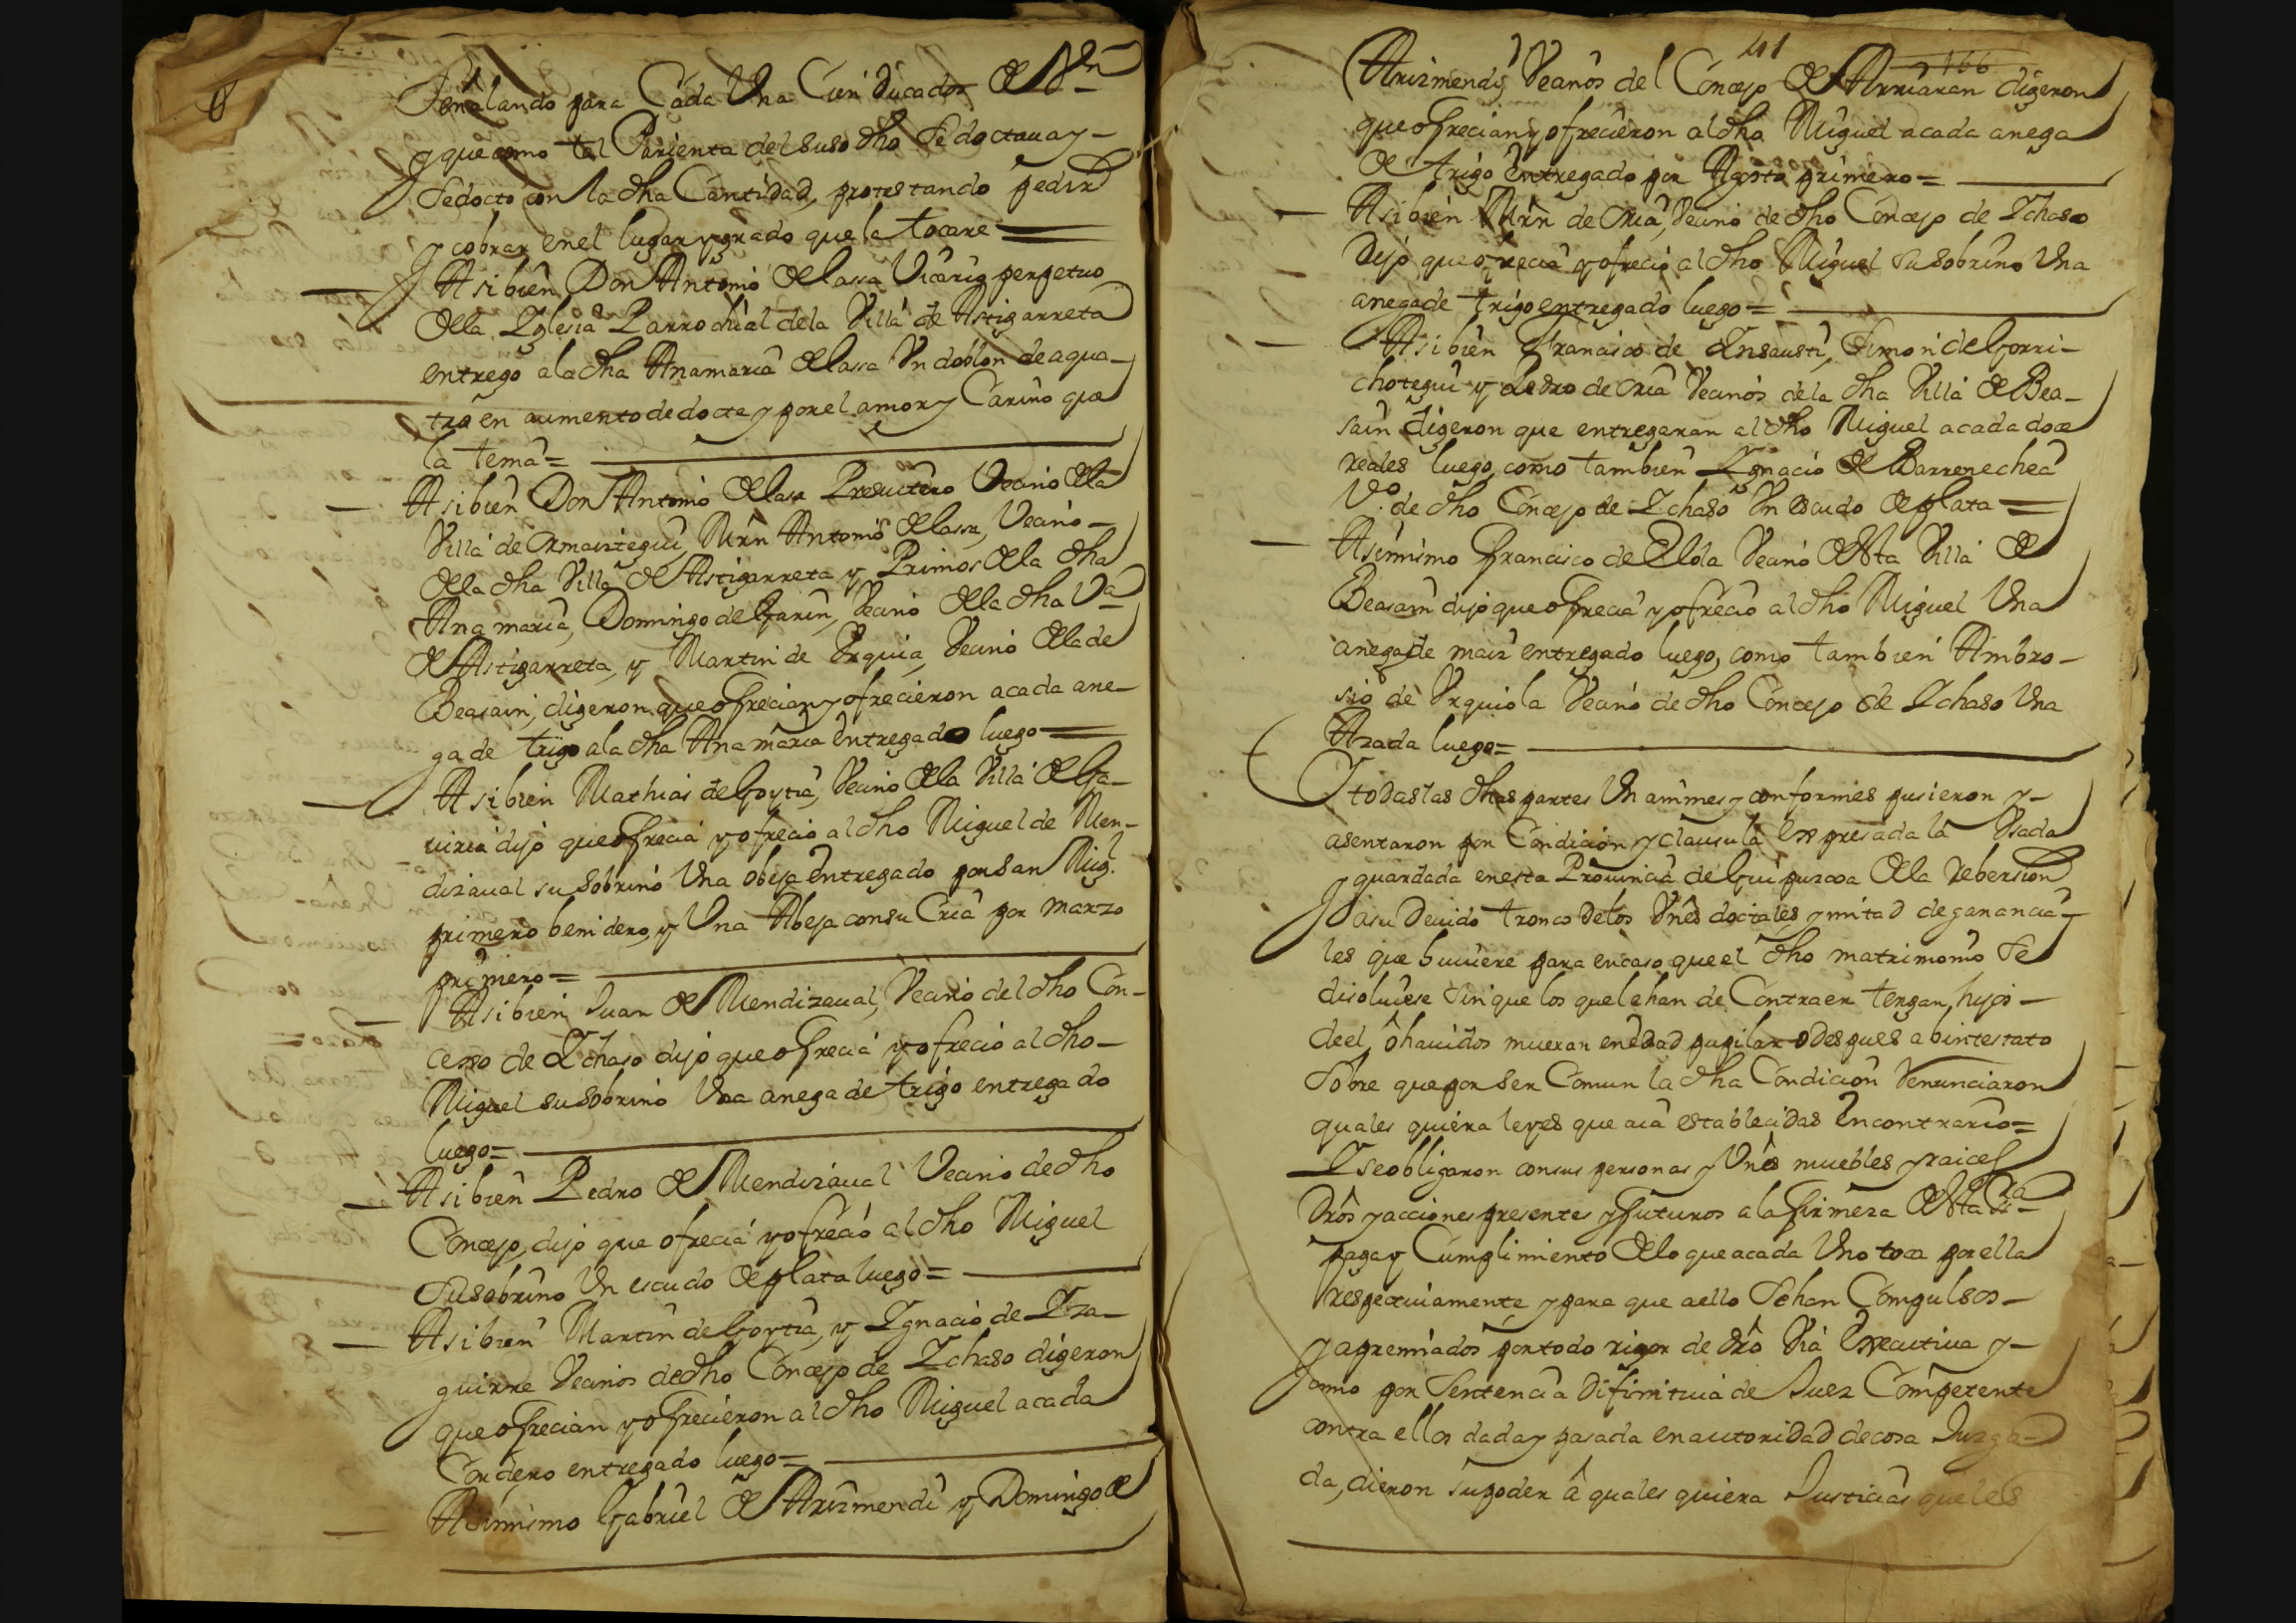 Señalando para Cada Una Cien Ducados de Vn
y que como tal Parienta del suso dho se doctaua y
se docto con la dha Cantidad, protestando pedir
y cobrar en el lugar y grado que la tocare =
Asi bien Don Antonio de Lassa Vicario perpetuo
de la Iglesia Parrochial de la Villa de Astigarreta
entrego a la dha Anamaria de Lassa Un doblon de a qua-
tro en aumento de docte y por el amor y Cariño que
la tenia =
Asi bien Don Antonio de Lasa Presuitero Vecino de la
Villa de Ormaiztegui, Mrn Antonio de Lassa, Vecino
de la dha Villa de Astigarreta y Primos de la dha
Ana maria, Domingo de Garin, Vecino de la dha Va
de Astigarreta, y Martin de Urquia, Vecino de la de
Beasain, digeron que ofrecian y ofrecieron a cada ane-
ga de trigo a la dha Ana maria entregado luego =
Asi bien Mathias de Goytia, Vecino de la Villa de Ga-
uiria dijo que ofrecia y ofrecio al dho Miguel de Men-
dizaual su sobrino Una obeja entregado por San Migl.
primero benidero, y Una Abeja con su Cria por marzo
primero =
Asi bien Juan de Mendizaual, Vecino del dho Con-
cejo de Ichaso dijo que ofrecia y ofrecio al dho
Miguel su sobrino Una anega de trigo entregado
luego =
Asi bien Pedro de Mendizaual Vecino de dho
Concejo, dijo que ofrecia y ofrecio al dho Miguel
su sobrino Un escudo de plata luego =
Asi bien Martin de Goytia, y Ignacio de Iza-
guirre Vecinos de dho Concejo de Ichaso digeron
que ofrecian y ofrecieron al dho Miguel a cada
Cordero entregado luego =
Asimismo Gabriel de Arizmendi y Domingo de
41
166
Arizmendi, Vecinos del Concejo de Arriaran digeron
que ofrecian y ofrecieron al dho Miguel a cada anega
de trigo entregado por Agosto primero =
Asi bien Mrn de Oria, Vecino de dho Concejo de Ichaso
Dijo que ofrecia y ofrecio al dho Miguel su sobrino Una
anega de trigo entregado luego =
Asi bien Francisco de Insausti, Simon de Gorri-
chotegui y Pedro de Oria Vecinos de la dha Villa de Bea-
sain digeron que entregaran al dho Miguel a cada doce
reales luego, como tambien Ignacio de Barrenechea
Vo. de dho Concejo de Ichaso Un escudo de plata =
Asimismo Francisco de Elola Vecino desta Villa de
Beasain dijo que ofrecia y ofrecio al dho Miguel Una
anega de maiz entregado luego, como tambien Ambro-
sio de Urquiola Vecino de dho Concejo de Ichaso Una
Azada luego =
Y todas las dhas partes Unanimes y conformes pusieron y
asentaron por Condicion y clausula Expresada la Usada
y guardada en esta Prouincia de Guipuzcoa de la rebersion
a su Deuido tronco de los Vnes doctales, y mitad de ganancia-
les que huuiere para en caso que el dho matrimonio se
disoluiese sin que los que le han de Contraer tengan, hijos
de el, ô hauidos mueran en edad pupilar o despues abintestato
Sobre que por ser Comun la dha Condicion renunciaron
quales quiera leyes que aia establecidas en contrario =
Y se obligaron con sus personas y Vnes muebles y raices
Dros y acciones presentes y futuros a la firmeza desta Esra
paga y Cumplimiento de lo que a cada Uno toca por ella
respectiuamente, y para que a ello sehan Compulsos
y apremiados por todo rigor de dro Via Executiua y
como por Sentencia Difinitiua de Juez Competente
contra ellos dada y pasada en autoridad de cosa Juzga-
da, dieron su poder â quales quiera Justicias que les